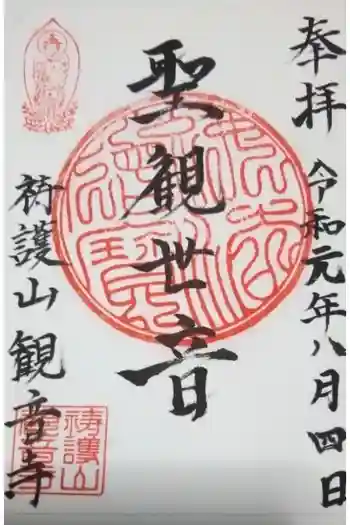 奉拝
令和元年八月四日
聖観世音
祷護山観音寺
祷護山
観音寺